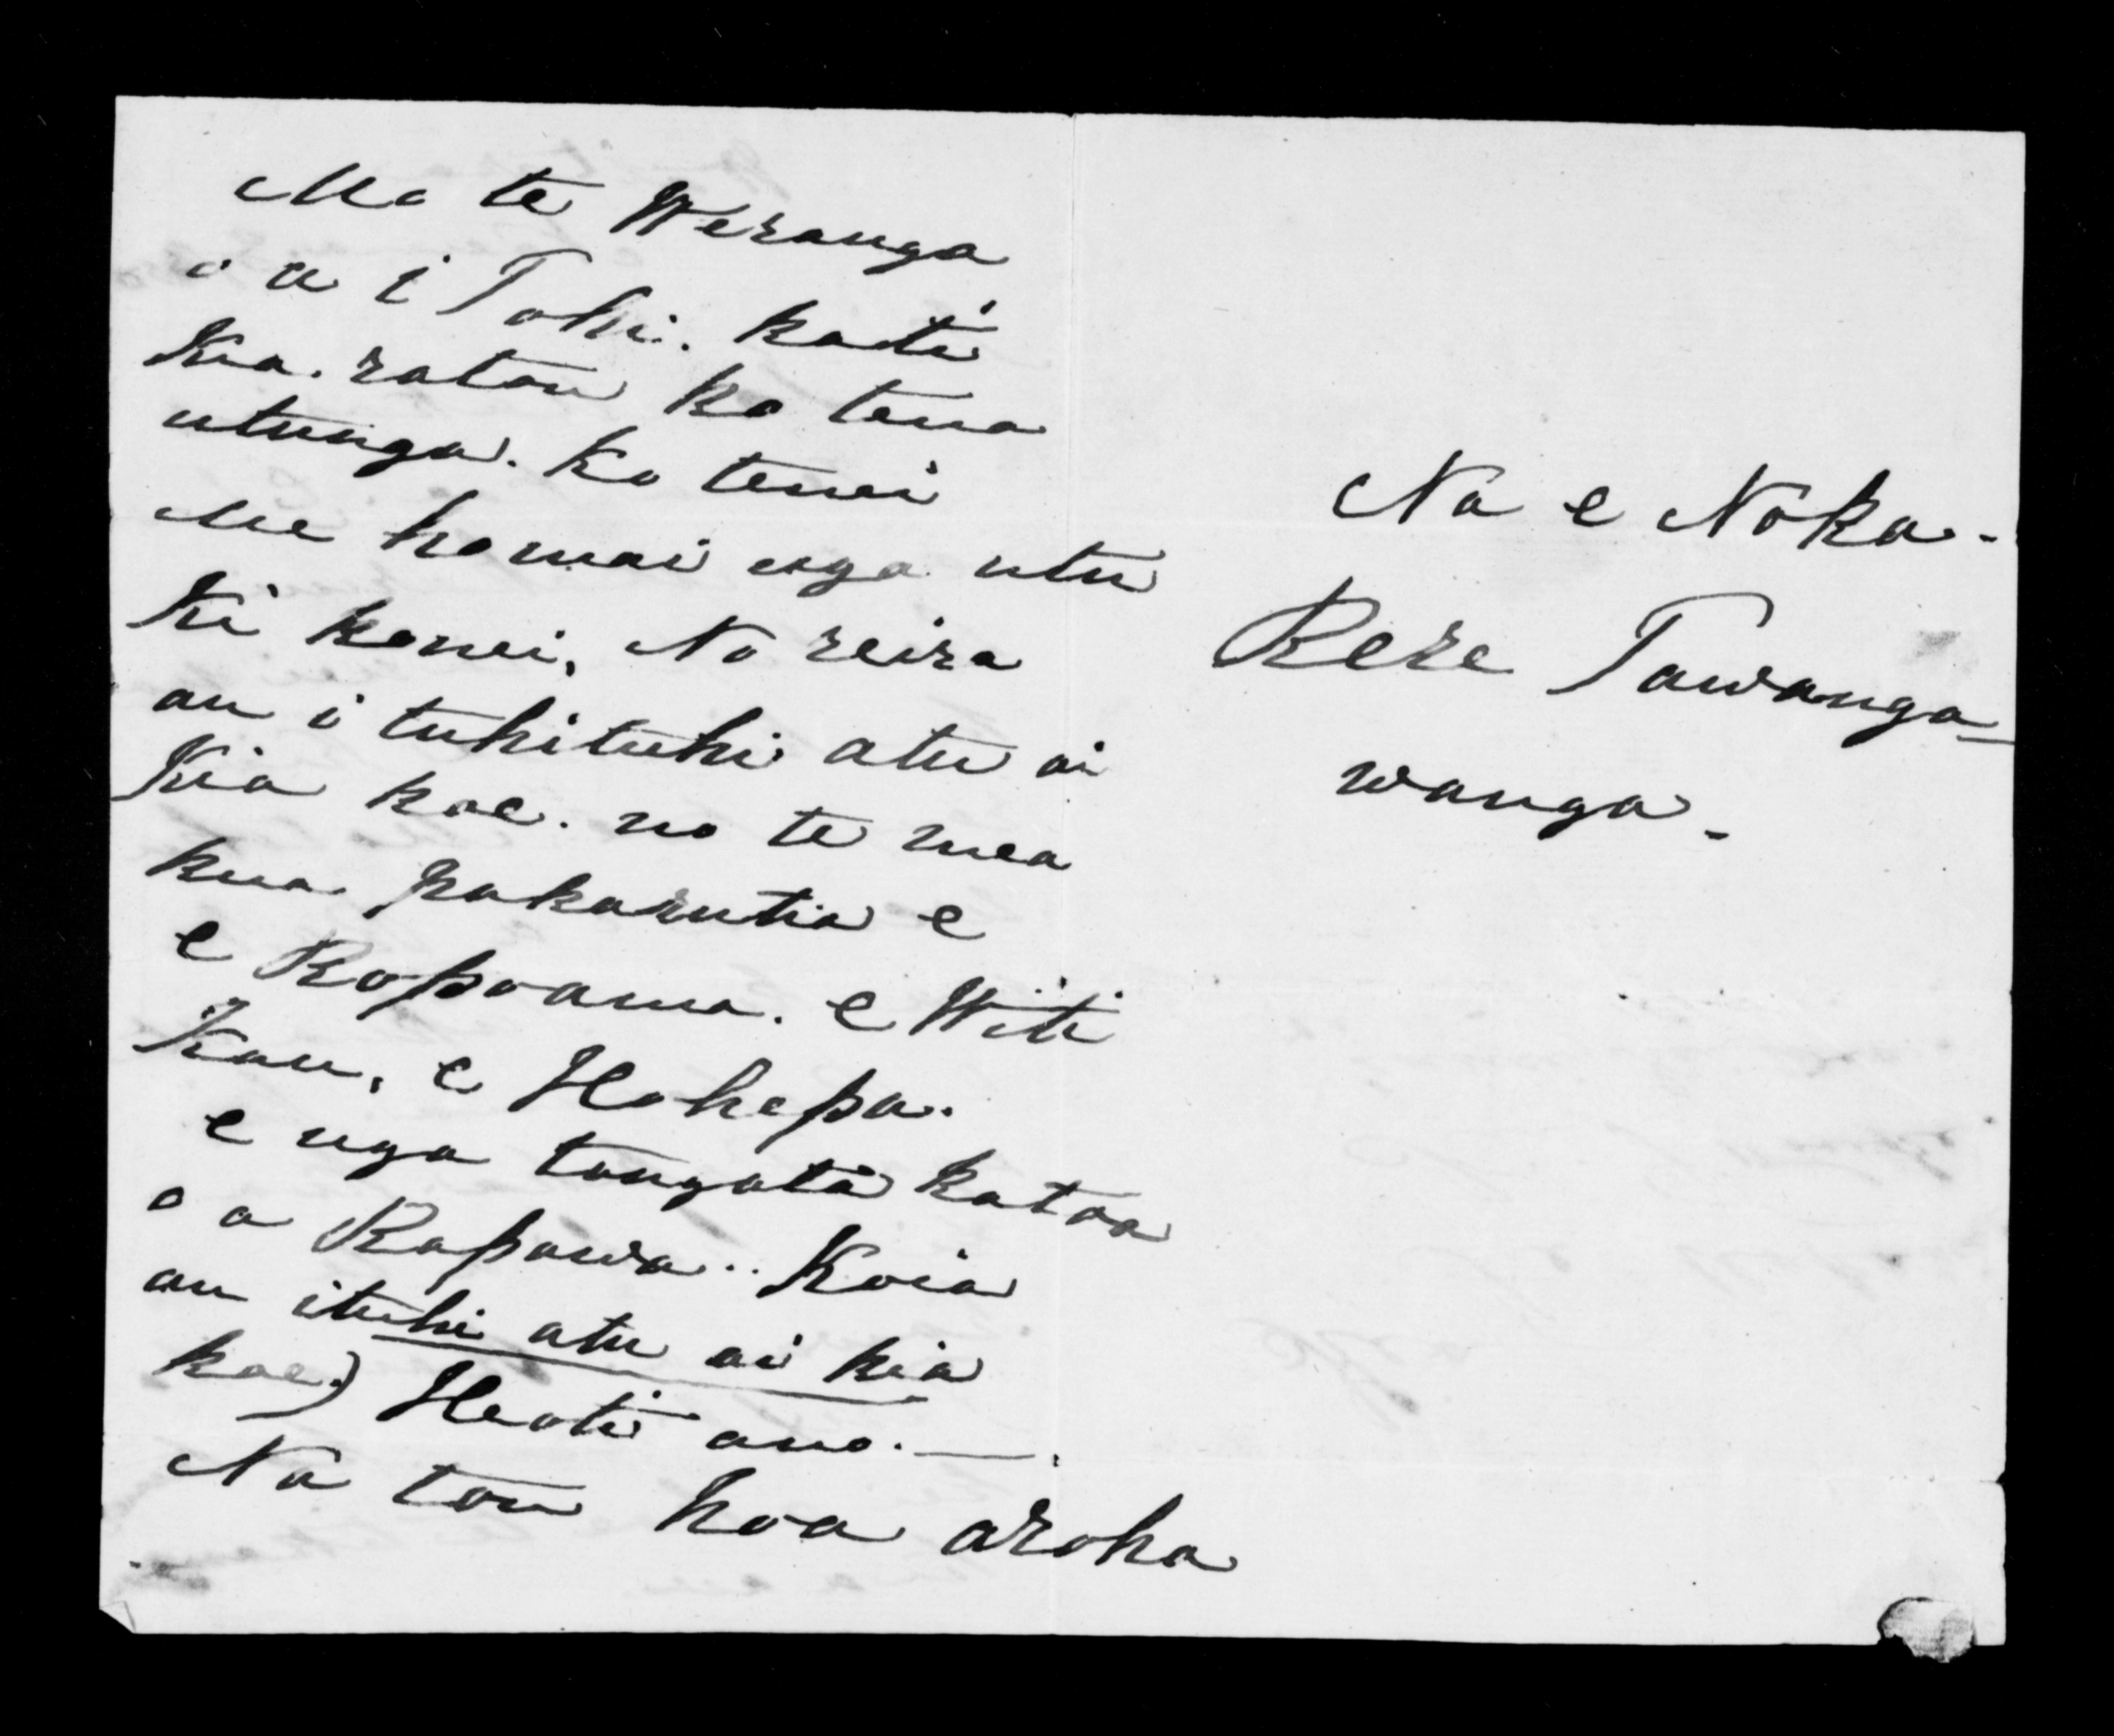 Mo te Weranga
o a i Tohi. kati
Kia. ratou ko tena
utunga. Ko tenei
me homai nga utu
ki konei, No reira
au i tuhituhi atu ai
Kia koe. no te mea
kua pakarutia e
e Ropoama. e Witi
Kau, e Hohepa.
e nga tangata katoa
o a Rapawa.. Koia
au ituhi atu ai kia
koe.) Heoti ano. —.
Na tou hoa aroha
Na e Noka.-
Rere Tawanga-
wanga.-